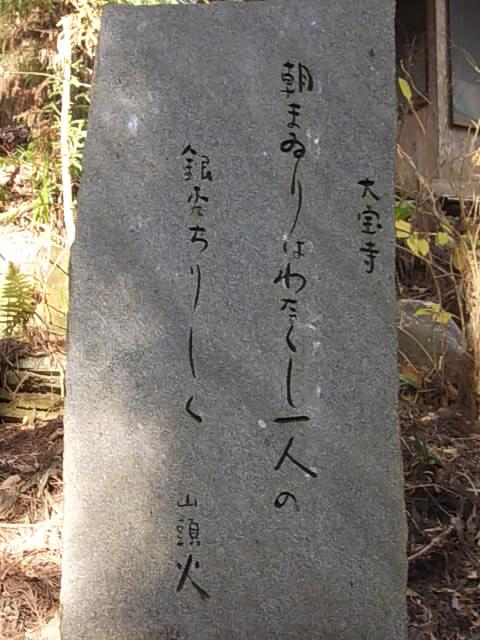 大宝寺
朝まゐりはわたくし一人の
銀杏ちりしく
山頭火